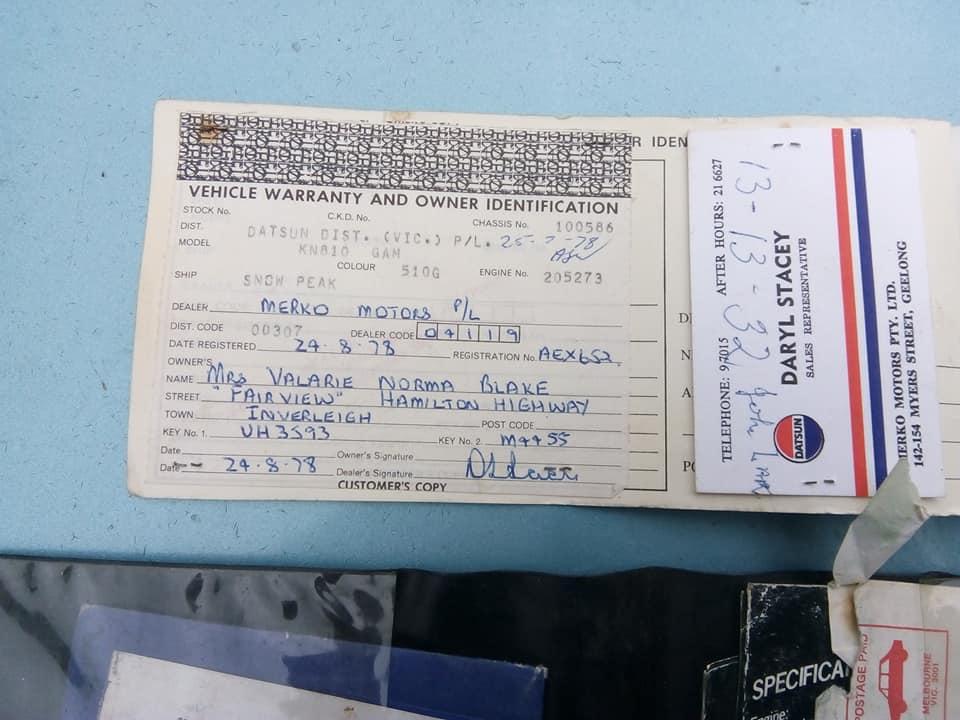 R IDEN
VEHICLE WARRANTY AND OWNER IDENTIFICATION
STOCK No. C.K.D. No. CHASSIS No. 100586
DIST. DATSUN DIST. (VIC.) P/L. 25- -78
MODEL KN810 GAM
COLOUR 510G ENGINE No. 205273
SHIP SNOW PEAK
DEALER MERKO MOTORS P/L
DIST. CODE 00307 DEALER CODE 04119
DATE REGISTERED 24.8.78 REGISTRATION No. AEX652
OWNER'S
NAME Mrs VALARIE NORMA BLAKE
STREET "FAIRVIEW" HAMILTON HIGHWAY
TOWN INVERLEIGH POST CODE
KEY No. 1. VH3593 KEY No. 2. M4455
Date Owner's Signature
Date 24.8.78 Dealer's Signature
CUSTOMER'S COPY
TELEPHONE: 97015 AFTER HOURS: 21 6627
13-13-32 John
DARYL STACEY
SALES REPRESENTATIVE
DATSUN
MERKO MOTORS PTY. LTD.
142-154 MYERS STREET, GEELONG
SPECIFICA
Engine:
POSTAGE PAID
MELBOURNE
VIC. 3001